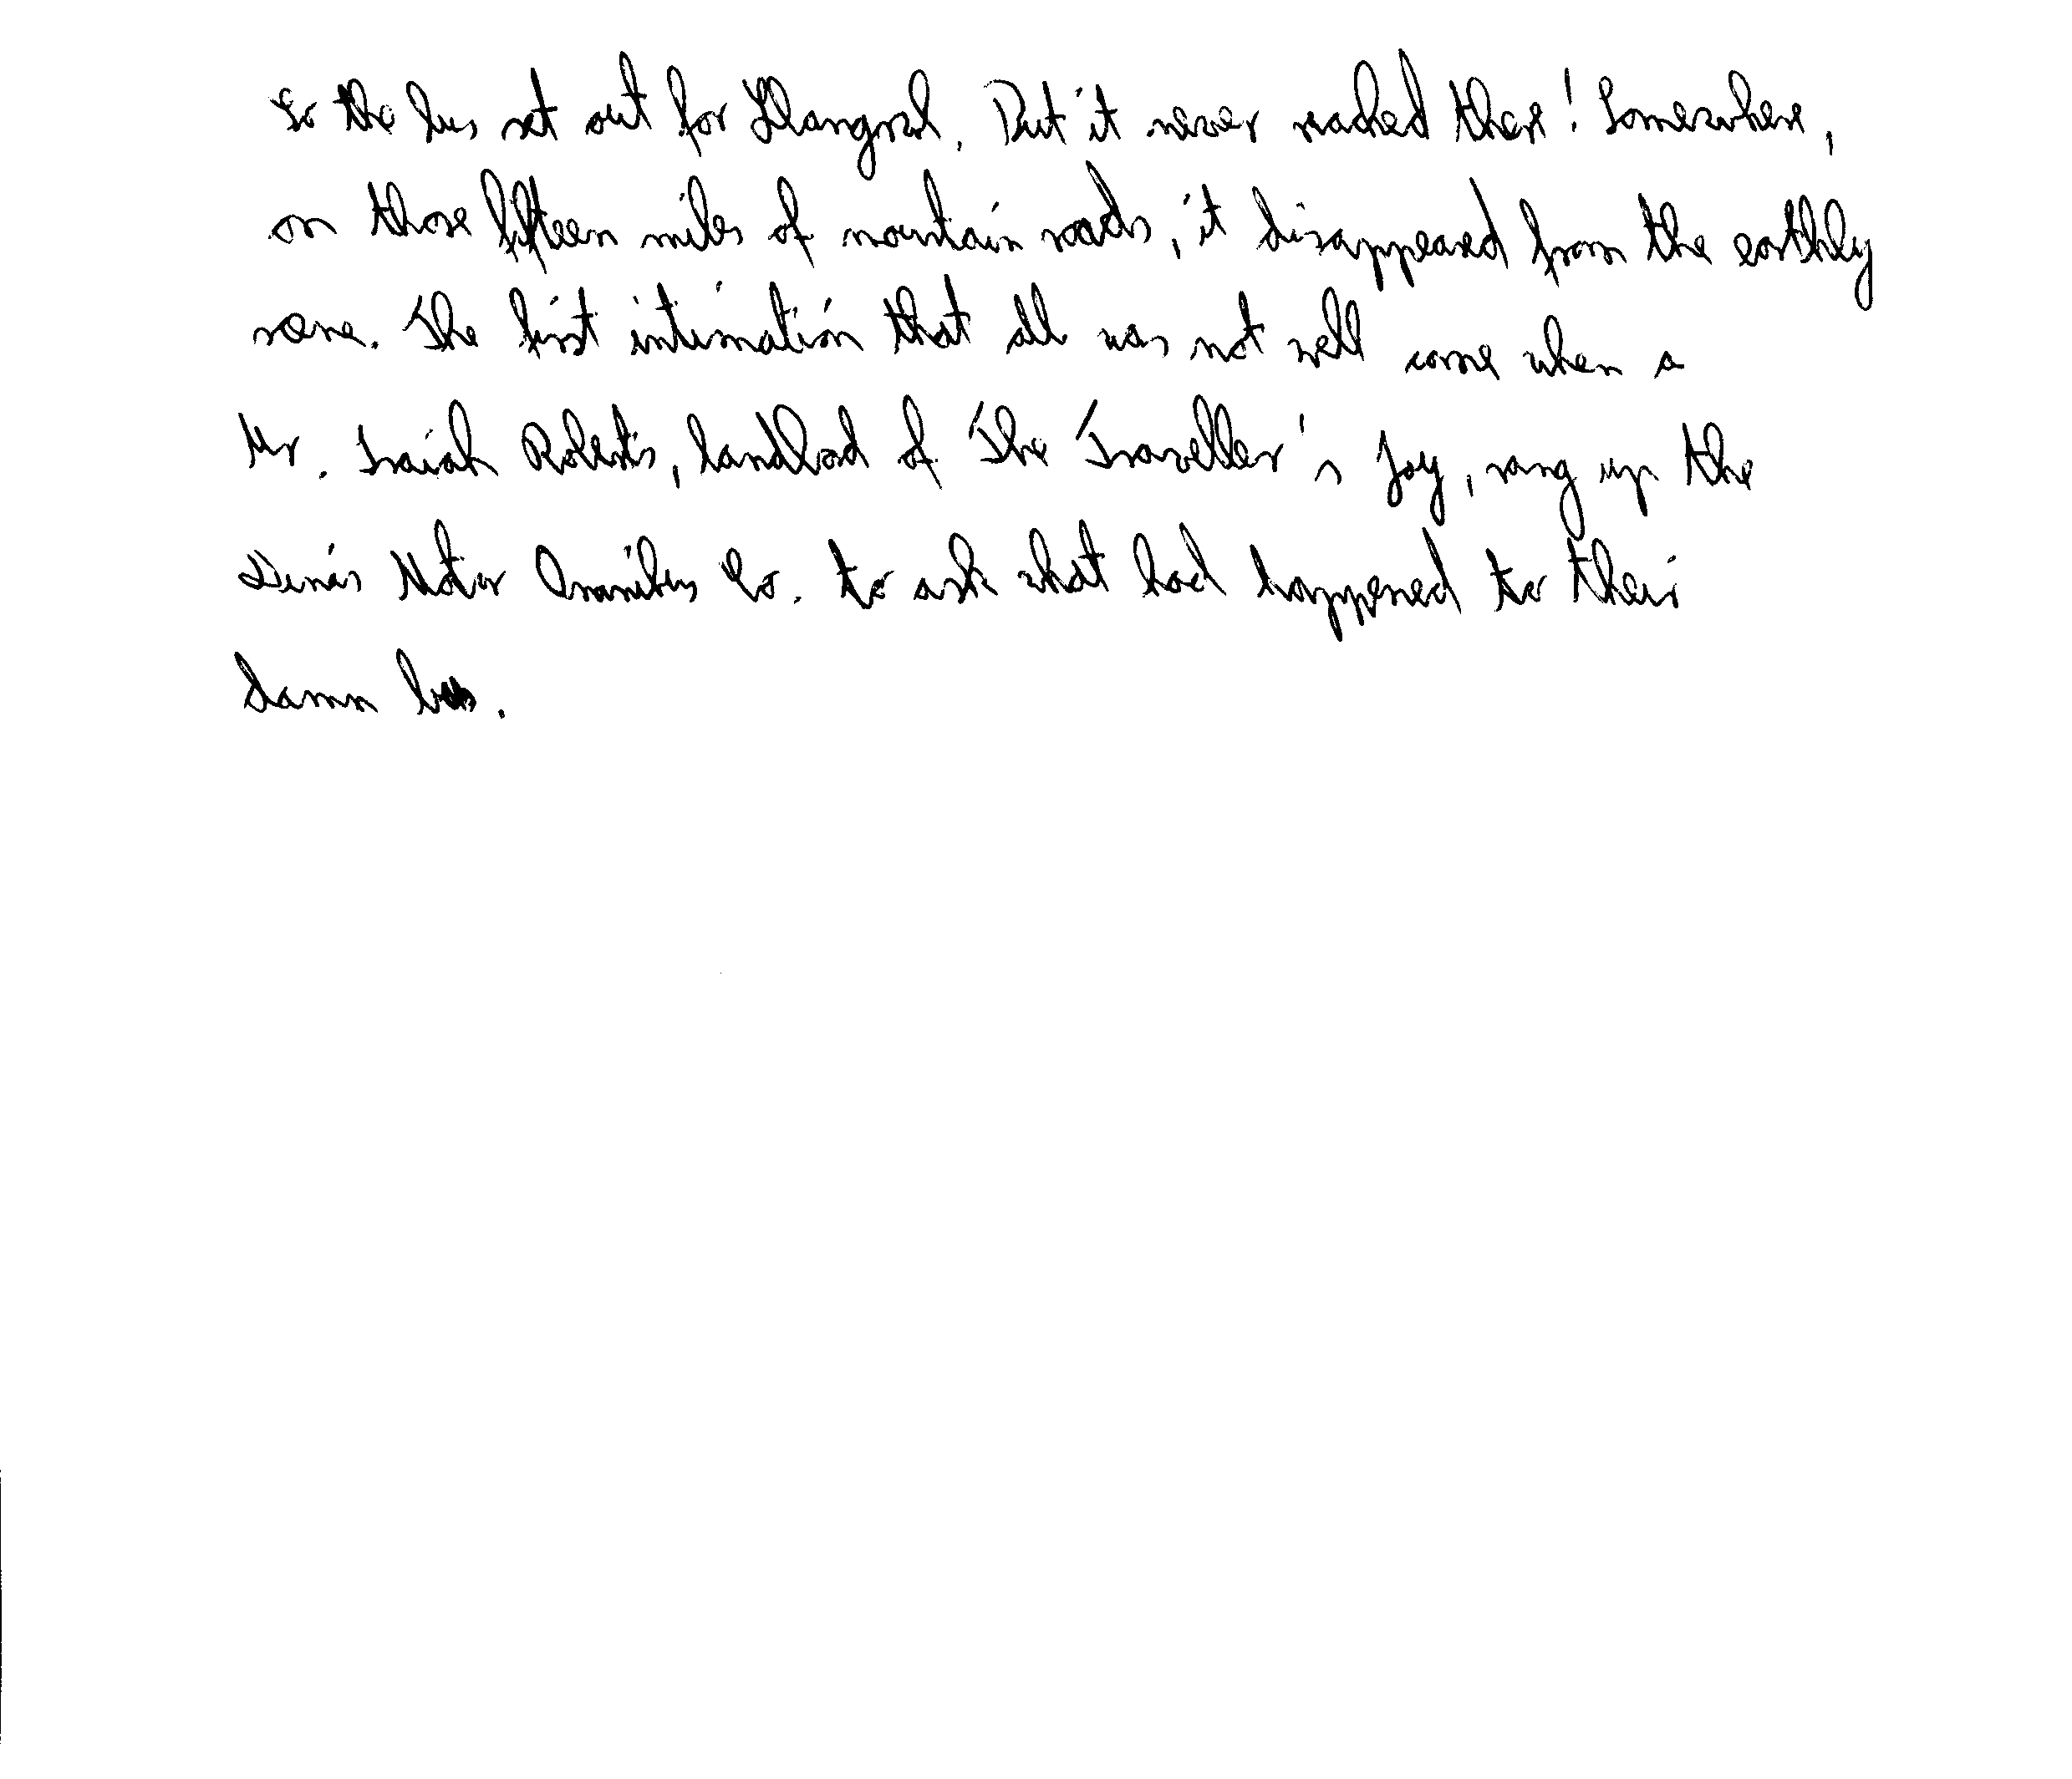 So the bus set out for Llangwrd. But it never reached there! Somewhere,
on those fifteen miles of mountain roads, it disappeared from the earthly
scene. The first intimation that all was not well came when a
Mr. Isaiah Roberts, landlord of The Traveller's Joy, rang up the
Dinas Motor Omnibus Co. to ask what had happened to their
damn bus.